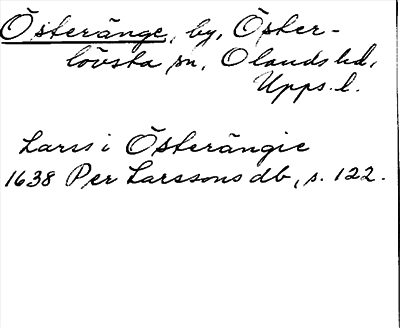 Österänge, by, Öster-
lövsta sn, Olands hd,
Upps. l.
Lars i Österängie
1638 Per Larssons db, s. 122.